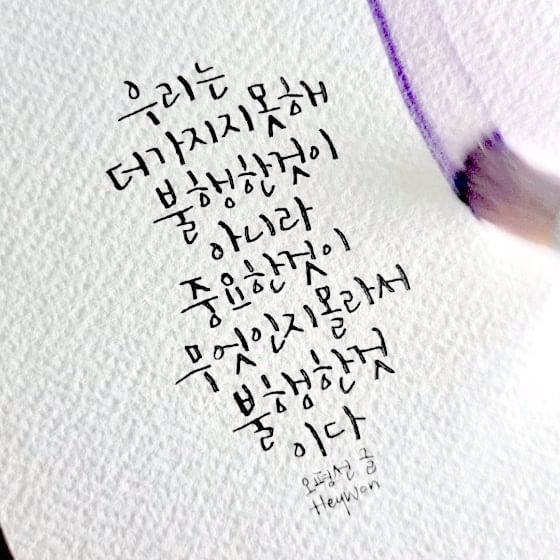 우리는
더가지지못해
불행한것이
아니라
중요한것이
무엇인지몰라서
불행한것
이다
오평선 글
HeyWon